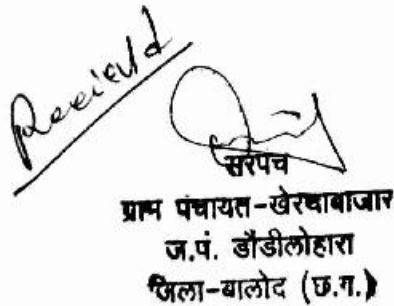 Received
सरपंच
ग्राम पंचायत-खेरथाबाजार
ज.पं. डौडीलोहारा
जिला-बालोद (छ.ग.)